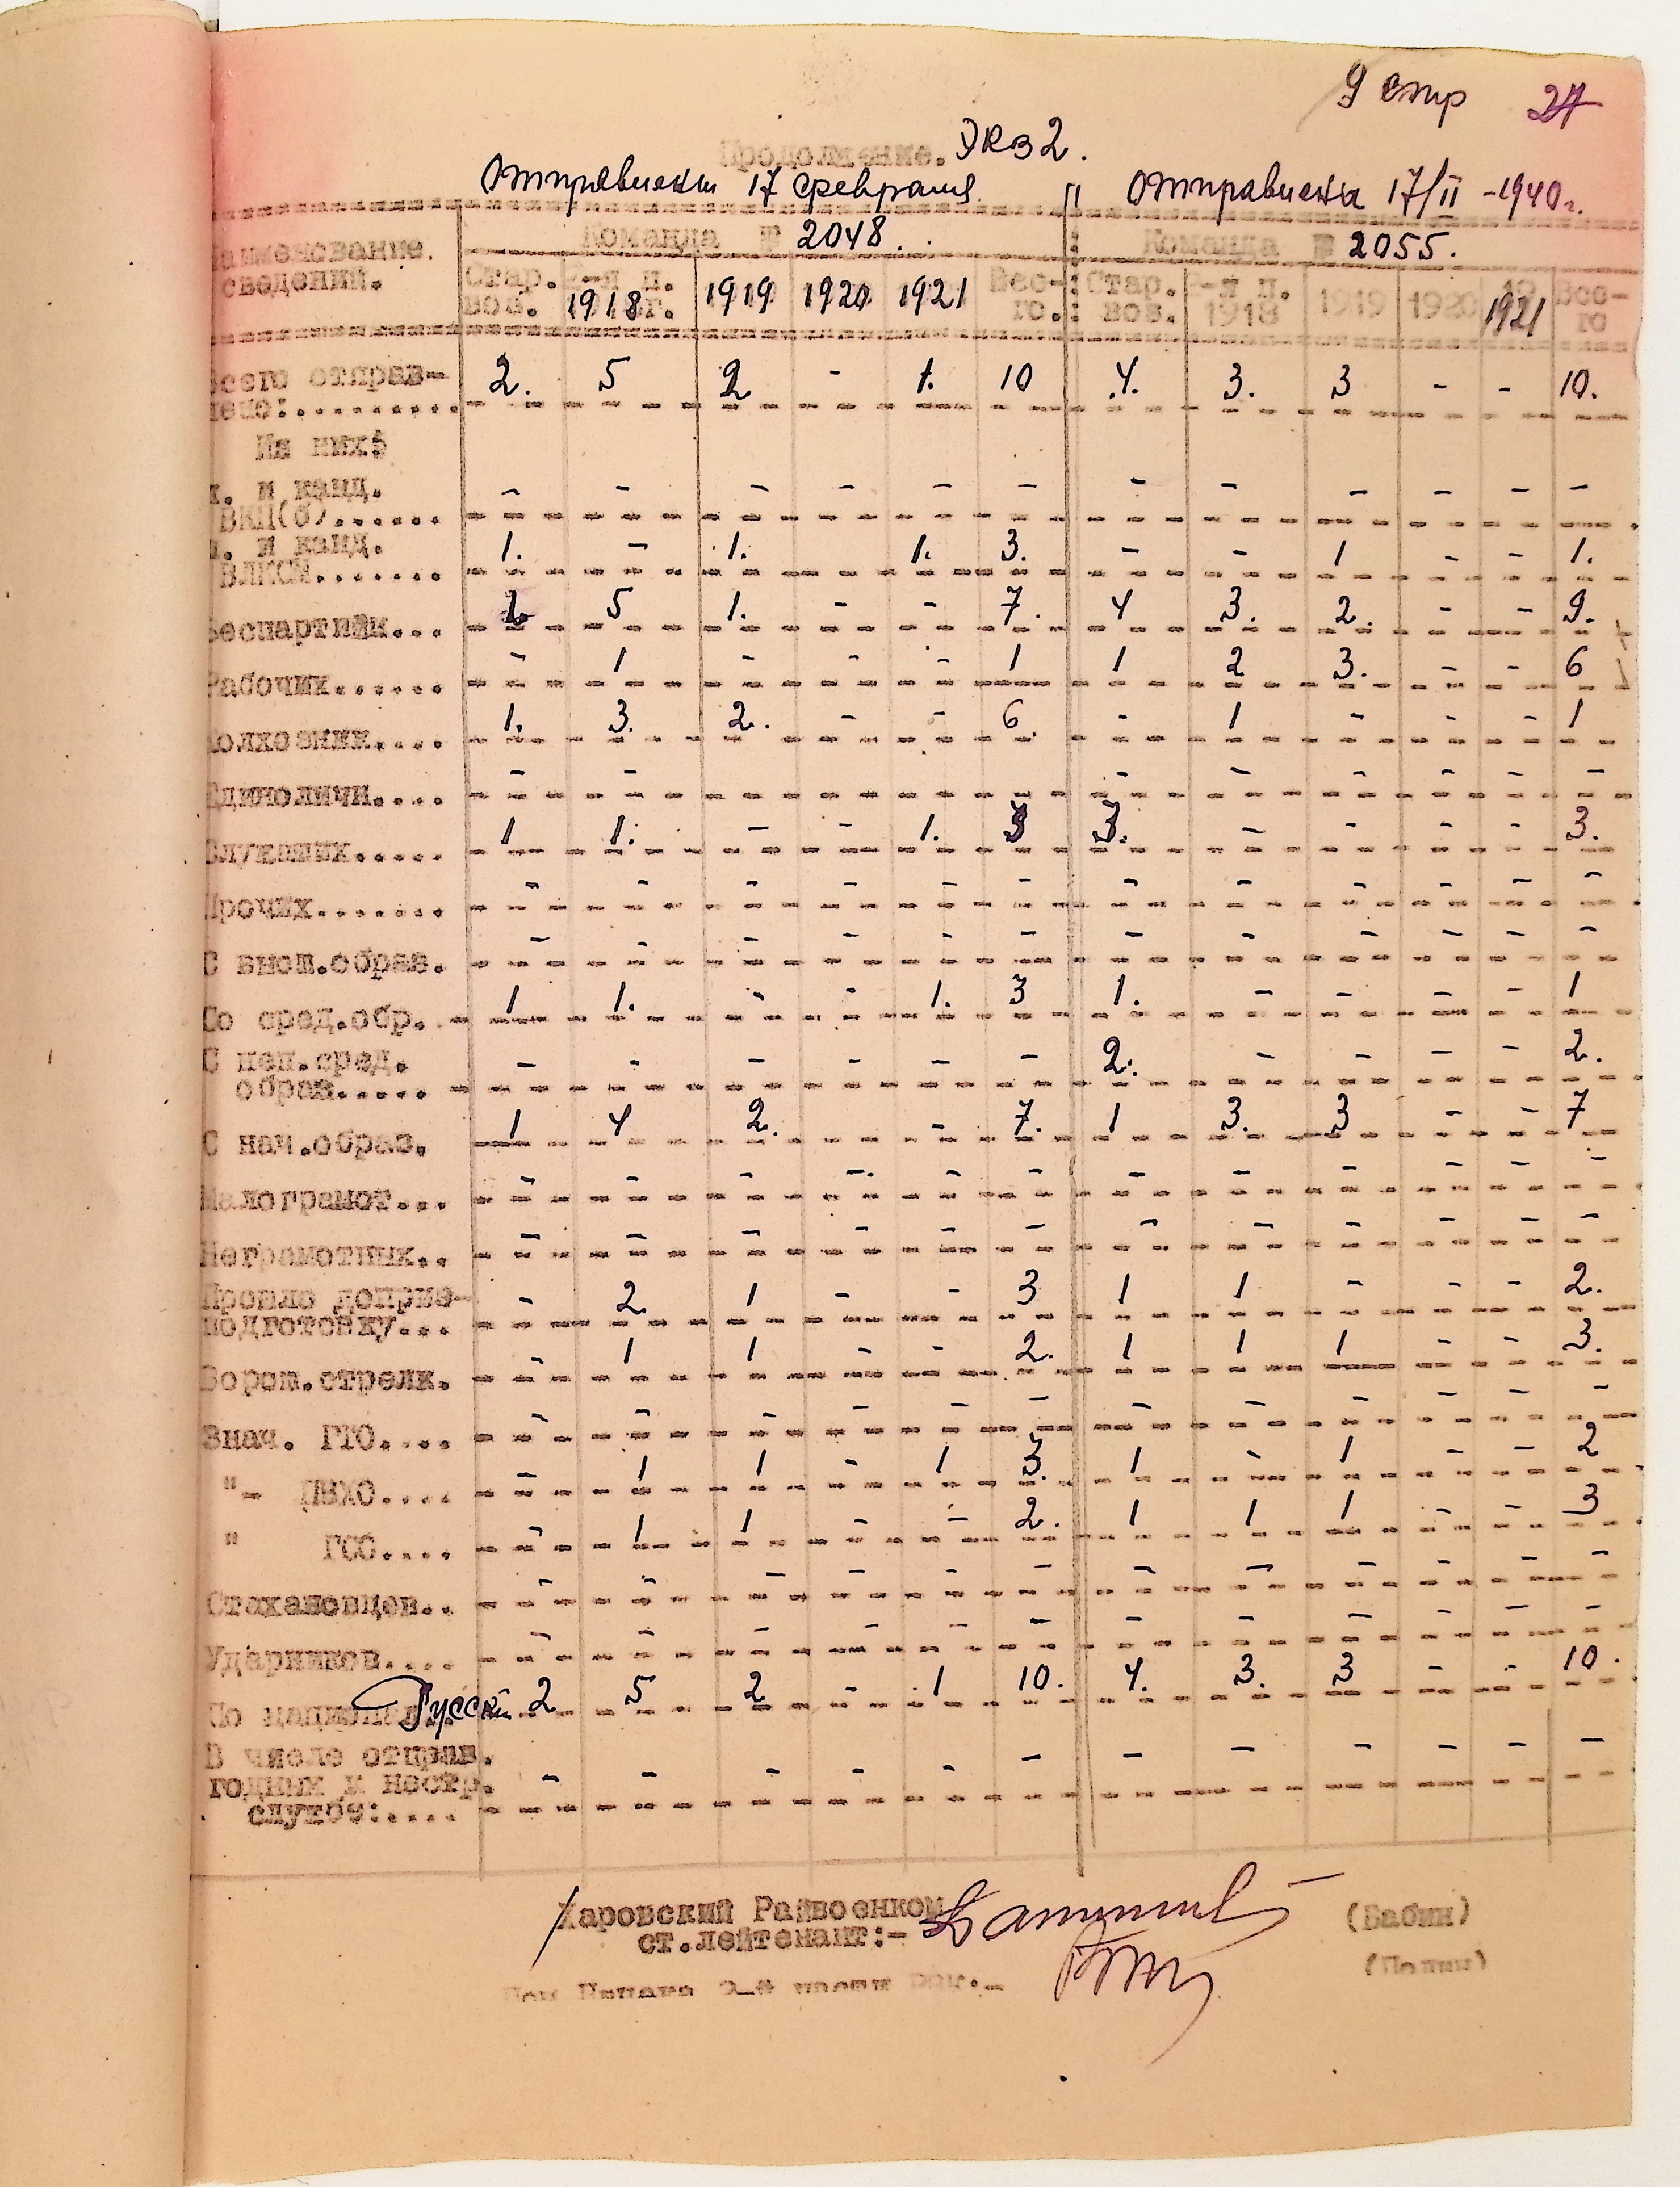 9 стр 27
Продолжение. Экз 2.
Отправлены 17 февраля " Отправлена 17/II -1940 г.
Наименование сведений. Команда № 2048. Команда № 2055.
Стар. воз. 1-й п. 1918 г. 1919 1920 1921 Все-го.: Стар. воз. 1-й п. 1918 1919 1920 1921 Все-го
Всего отправ-
лено:.......... 2. 5 2 - 1. 10 4. 3. 3 - - 10.
Из них:
ч. и канд.
ВКП(б)...... - - - - - - - - - - - -
ч. и канд.
ВЛКСМ....... 1. - 1. 1. 3. - - 1 - - 1.
Беспартийн... 1 5 1. - - 7. 4 3. 2. - - 9.
Рабочих...... - 1 - - - 1 1 2 3. - - 6
Колхозник.... 1. 3. 2. - - 6. - 1 - - - 1
Единоличн.... - - - - - - - -
Служащих..... 1 1. - - 1. 3 3. - - - - 3.
Прочих....... - - - - - - - - - - - -
С высш.образ. - - - - - - - - - - - -
Со сред.обр. 1 1. - - 1. 3 1. - - - - 1
С неп.сред.
образ...... - - - - - - 2. - - - - 2.
С нач.образ. 1 4 2. - 7. 1 3. 3 - - 7
Малограмот... - - - - - - - - - - - -
Неграмотных.. - - - - - - - - - - - -
Прошло допризы-
подготовку... - 2 1 - - 3 1 1 - - - 2.
Ворош.стрелк. - 1 1 - - 2. 1 1 1 - - 3.
Знач. ГТО.... - - - - - - - - - - - -
"- ПВХО.... - 1 1 - 1 3. 1 - 1 - - 2
" ГСО.... - 1 1 - - 2. 1 1 1 - - 3
Стахановцев.. - - - - - - - - - - - -
Ударников.... - - - - - - - - - - - -
По национал. Русский 2 5 2 - 1 10. 4. 3. 3 - - 10.
В числе отправ.
годных к нестр.
службе:.... - - - - - - - - - - - -
Харовский Райвоенком
ст.лейтенант:- (Бабин)
Пом Начана 2-й части РВК.-